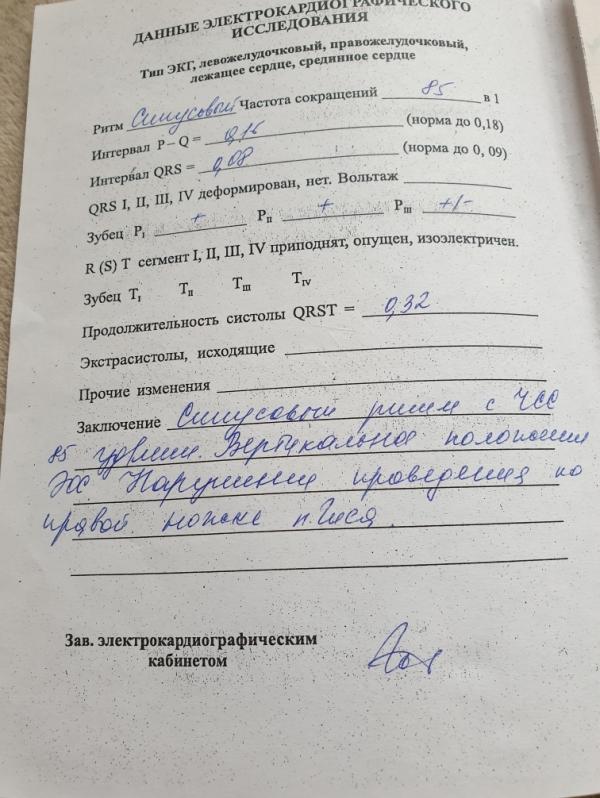 ДАННЫЕ ЭЛЕКТРОКАРДИОГРАФИЧЕСКОГО
ИССЛЕДОВАНИЯ
Тип ЭКГ, левожелудочковый, правожелудочковый,
лежащее сердце, срединное сердце
Ритм Синусовый Частота сокращений 85 в 1
Интервал P – Q = 0,16 (норма до 0,18)
Интервал QRS = 0,08 (норма до 0, 09)
QRS I, II, III, IV деформирован, нет. Вольтаж
Зубец PI + PII + PIII +/-
R (S) T сегмент I, II, III, IV приподнят, опущен, изоэлектричен.
Зубец TI TII TIII TIV
Продолжительность систолы QRST = 0,32
Экстрасистолы, исходящие
Прочие изменения
Заключение Синусовый ритм с ЧСС
85 уд/мин. Вертикальное положение
ЭОС Нарушение проведения по
правой ножке п. Гиса.
Зав. электрокардиографическим
кабинетом